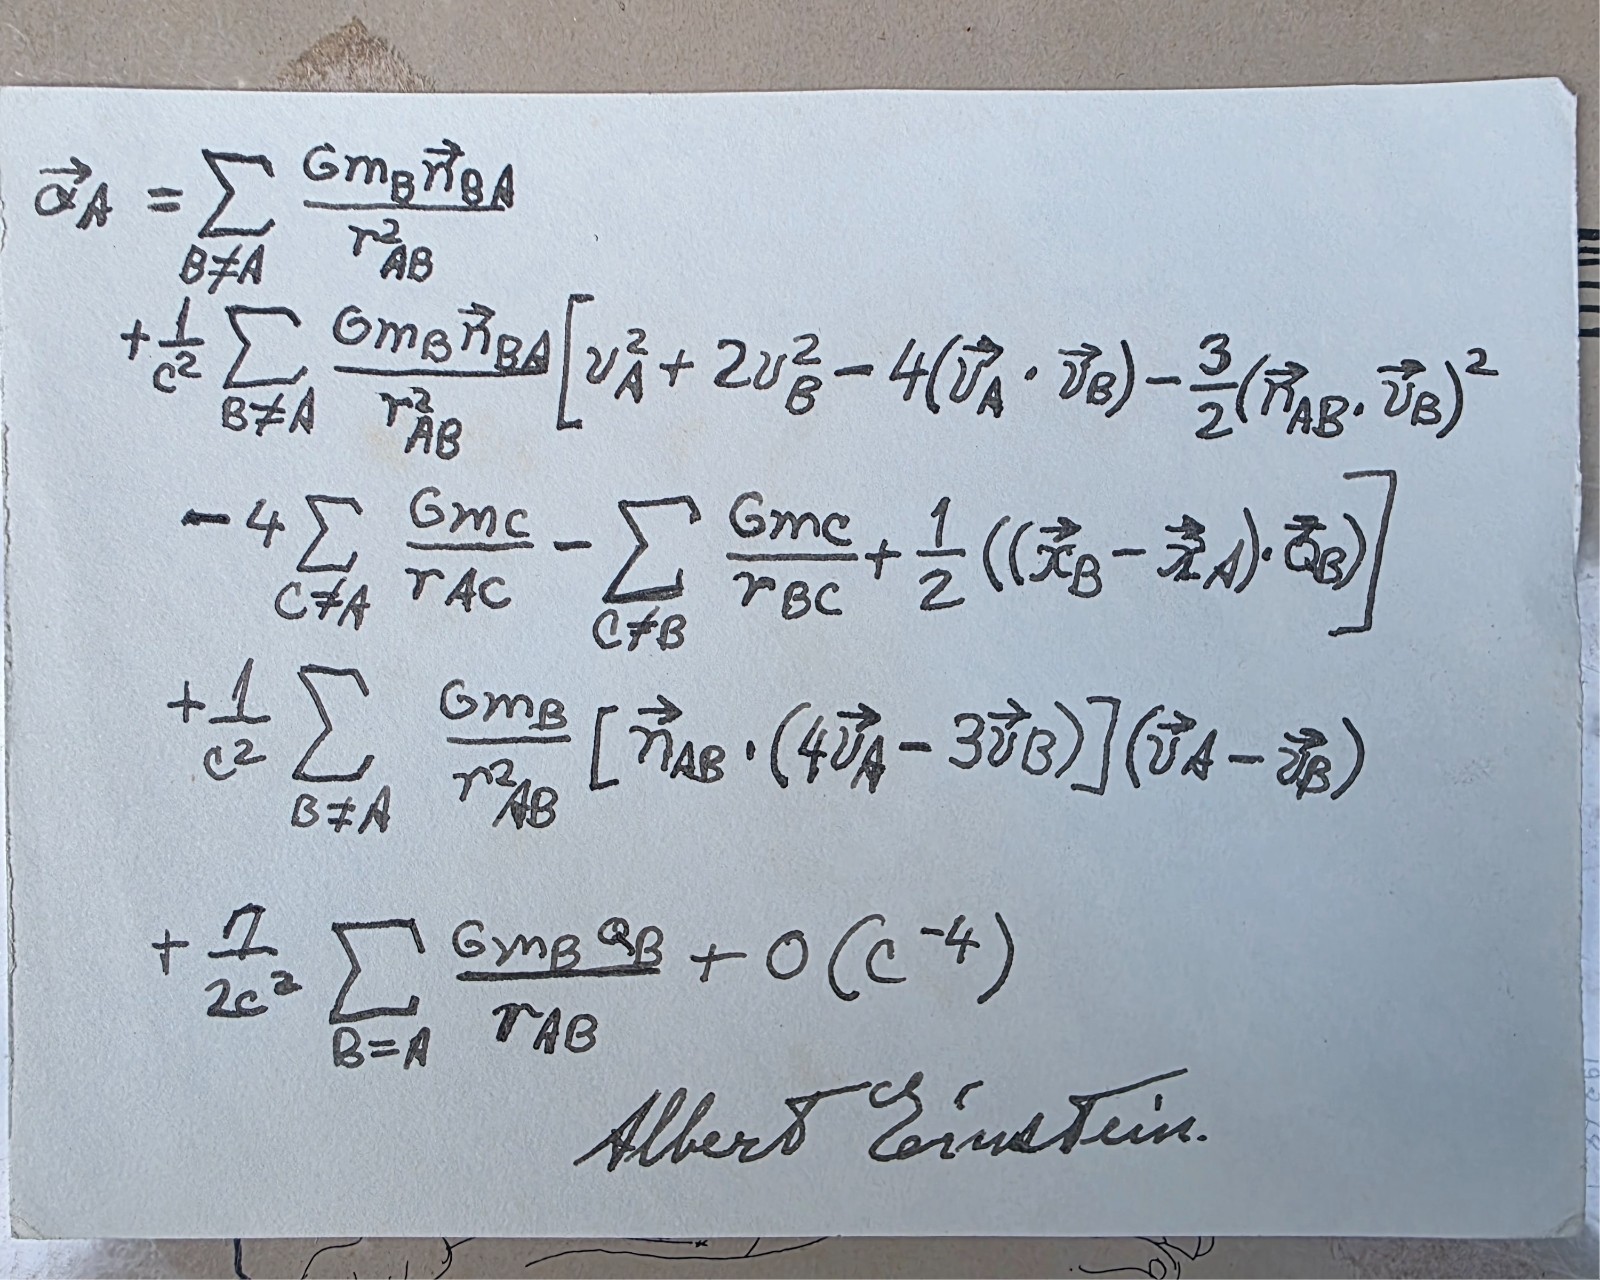 $\vec{a}_A = \sum_{B \neq A} \frac{G m_B \vec{n}_{BA}}{r_{AB}^2}$
$+ \frac{1}{c^2} \sum_{B \neq A} \frac{G m_B \vec{n}_{BA}}{r_{AB}^2} \left[ v_A^2 + 2v_B^2 - 4(\vec{v}_A \cdot \vec{v}_B) - \frac{3}{2}(\vec{n}_{AB} \cdot \vec{v}_B)^2 \right.$
$\left. - 4 \sum_{C \neq A} \frac{G m_C}{r_{AC}} - \sum_{C \neq B} \frac{G m_C}{r_{BC}} + \frac{1}{2}((\vec{x}_B - \vec{x}_A) \cdot \vec{a}_B) \right]$
$+ \frac{1}{c^2} \sum_{B \neq A} \frac{G m_B}{r_{AB}^2} [\vec{n}_{AB} \cdot (4\vec{v}_A - 3\vec{v}_B)](\vec{v}_A - \vec{v}_B)$
$+ \frac{7}{2c^2} \sum_{B = A} \frac{G m_B a_B}{r_{AB}} + O(c^{-4})$
Albert Einstein.